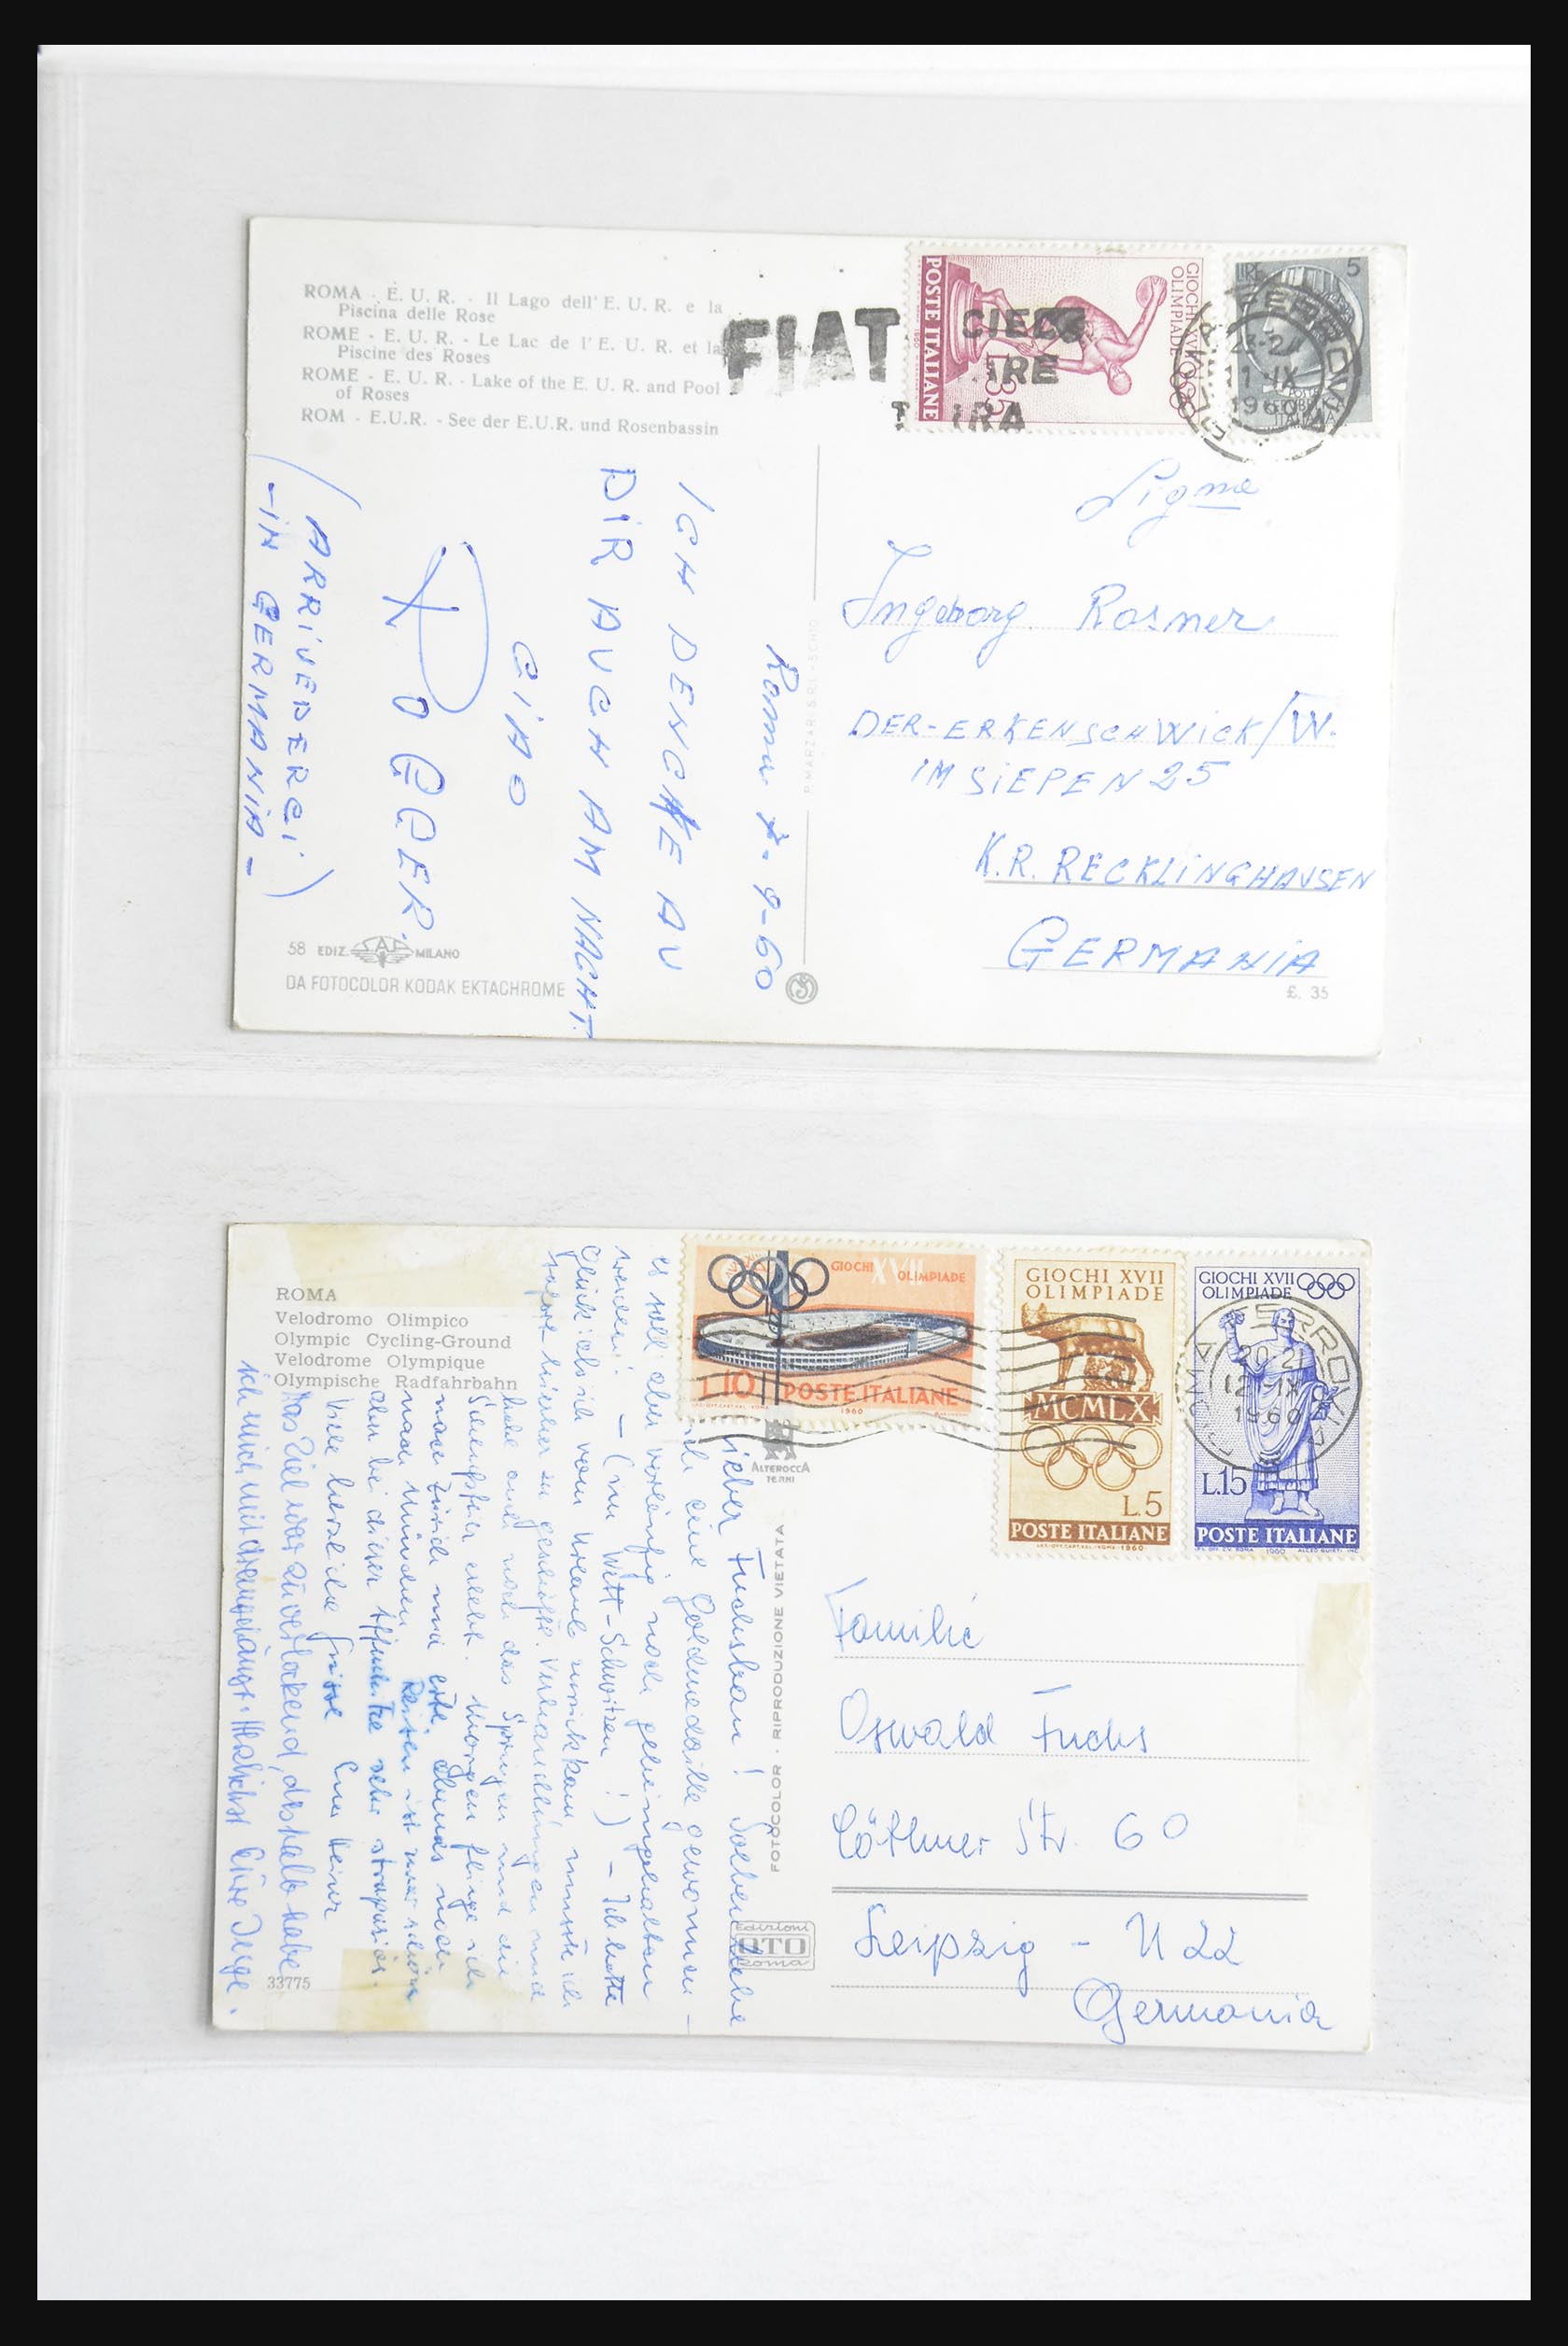 ROMA - E. U. R. - Il Lago dell' E. U. R. e la
Piscina delle Rose
ROME - E. U. R. - Le Lac de l'E. U. R. et la
Piscine des Roses
ROME - E. U. R. - Lake of the E. U. R. and Pool
of Roses
ROM - E.U.R. - See der E.U.R. und Rosenbassin
FIAT
POSTE ITALIANE
GIOCHI XVII
OLIMPIADE
L.35
LIRE 5
11 IX
1960
Roma 7-9-60
ICH DENCKE AU
DIR AUCH AM NACHT.
CIAO
ROGER.
(ARRIVEDERCI)
-IN GERMANIA-
Sigme
Ingeborg Rosner
DER-ERKENSCHWICK/W.
IM SIEPEN 25
K.R. RECKLINGHAUSEN
GERMANIA
£. 35
58 EDIZ. SAF MILANO
DA FOTOCOLOR KODAK EKTACHROME
ROMA
Velodromo Olimpico
Olympic Cycling-Ground
Velodrome Olympique
Olympische Radfahrbahn
GIOCHI XVII OLIMPIADE
L.10 POSTE ITALIANE
1960
GIOCHI XVII
OLIMPIADE
MCMLX
L.5
POSTE ITALIANE
GIOCHI XVII
OLIMPIADE
L.15
POSTE ITALIANE
20-21
12 IX
1960
ALTEROCCA
TERNI
FOTOCOLOR - RIPRODUZIONE VIETATA
Edizioni
OTO
Roma
Fuchsbau! Soeben habe
ich eine Goldmedaille gewonnen -
es soll aber vorläufig noch geheimgehalten
werden! - (nu Witt-Schwitzen!) - Ich hatte
Glück: als ich vom Urlaub zurückkam, musste ich
sofort hierher zu geschäftl. Verhandlungen und
habe auch noch das Springen und die
Schlußfeier erlebt. Morgen fliege ich
nach Zürich und evtl. abends noch
nach München. Reisen ist zwar schön
aber bei dieser Affenhitze sehr strapaziös.
Viele herzliche Grüsse Euer Heiner
Das Ziel war zu verlockend, deshalb habe
ich mich mit drangehängt. Herzlichst Eure Inge.
33775
Familie
Oswald Fuchs
Cöthner Str. 60
Leipzig - N 22
Germania